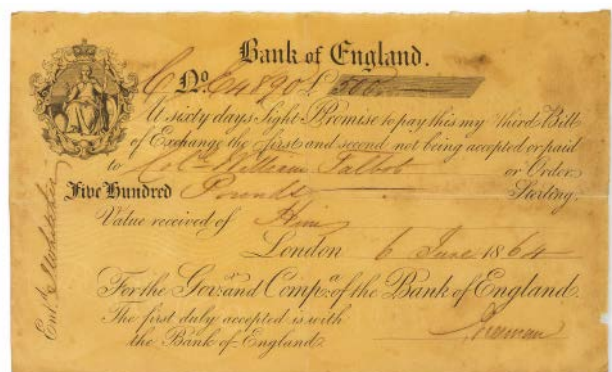 Bank of England.
C No. C4890 £ 500
At sixty days Sight I Promise to pay this my third Bill
of Exchange the first and second not being accepted or paid
to William Talbot or Order
Five Hundred Pounds Sterling;
Value received of Him
London 6 June 1864
For the Govr. and Compa. of the Bank of England.
The first duly accepted is with
the Bank of England.
Entd.